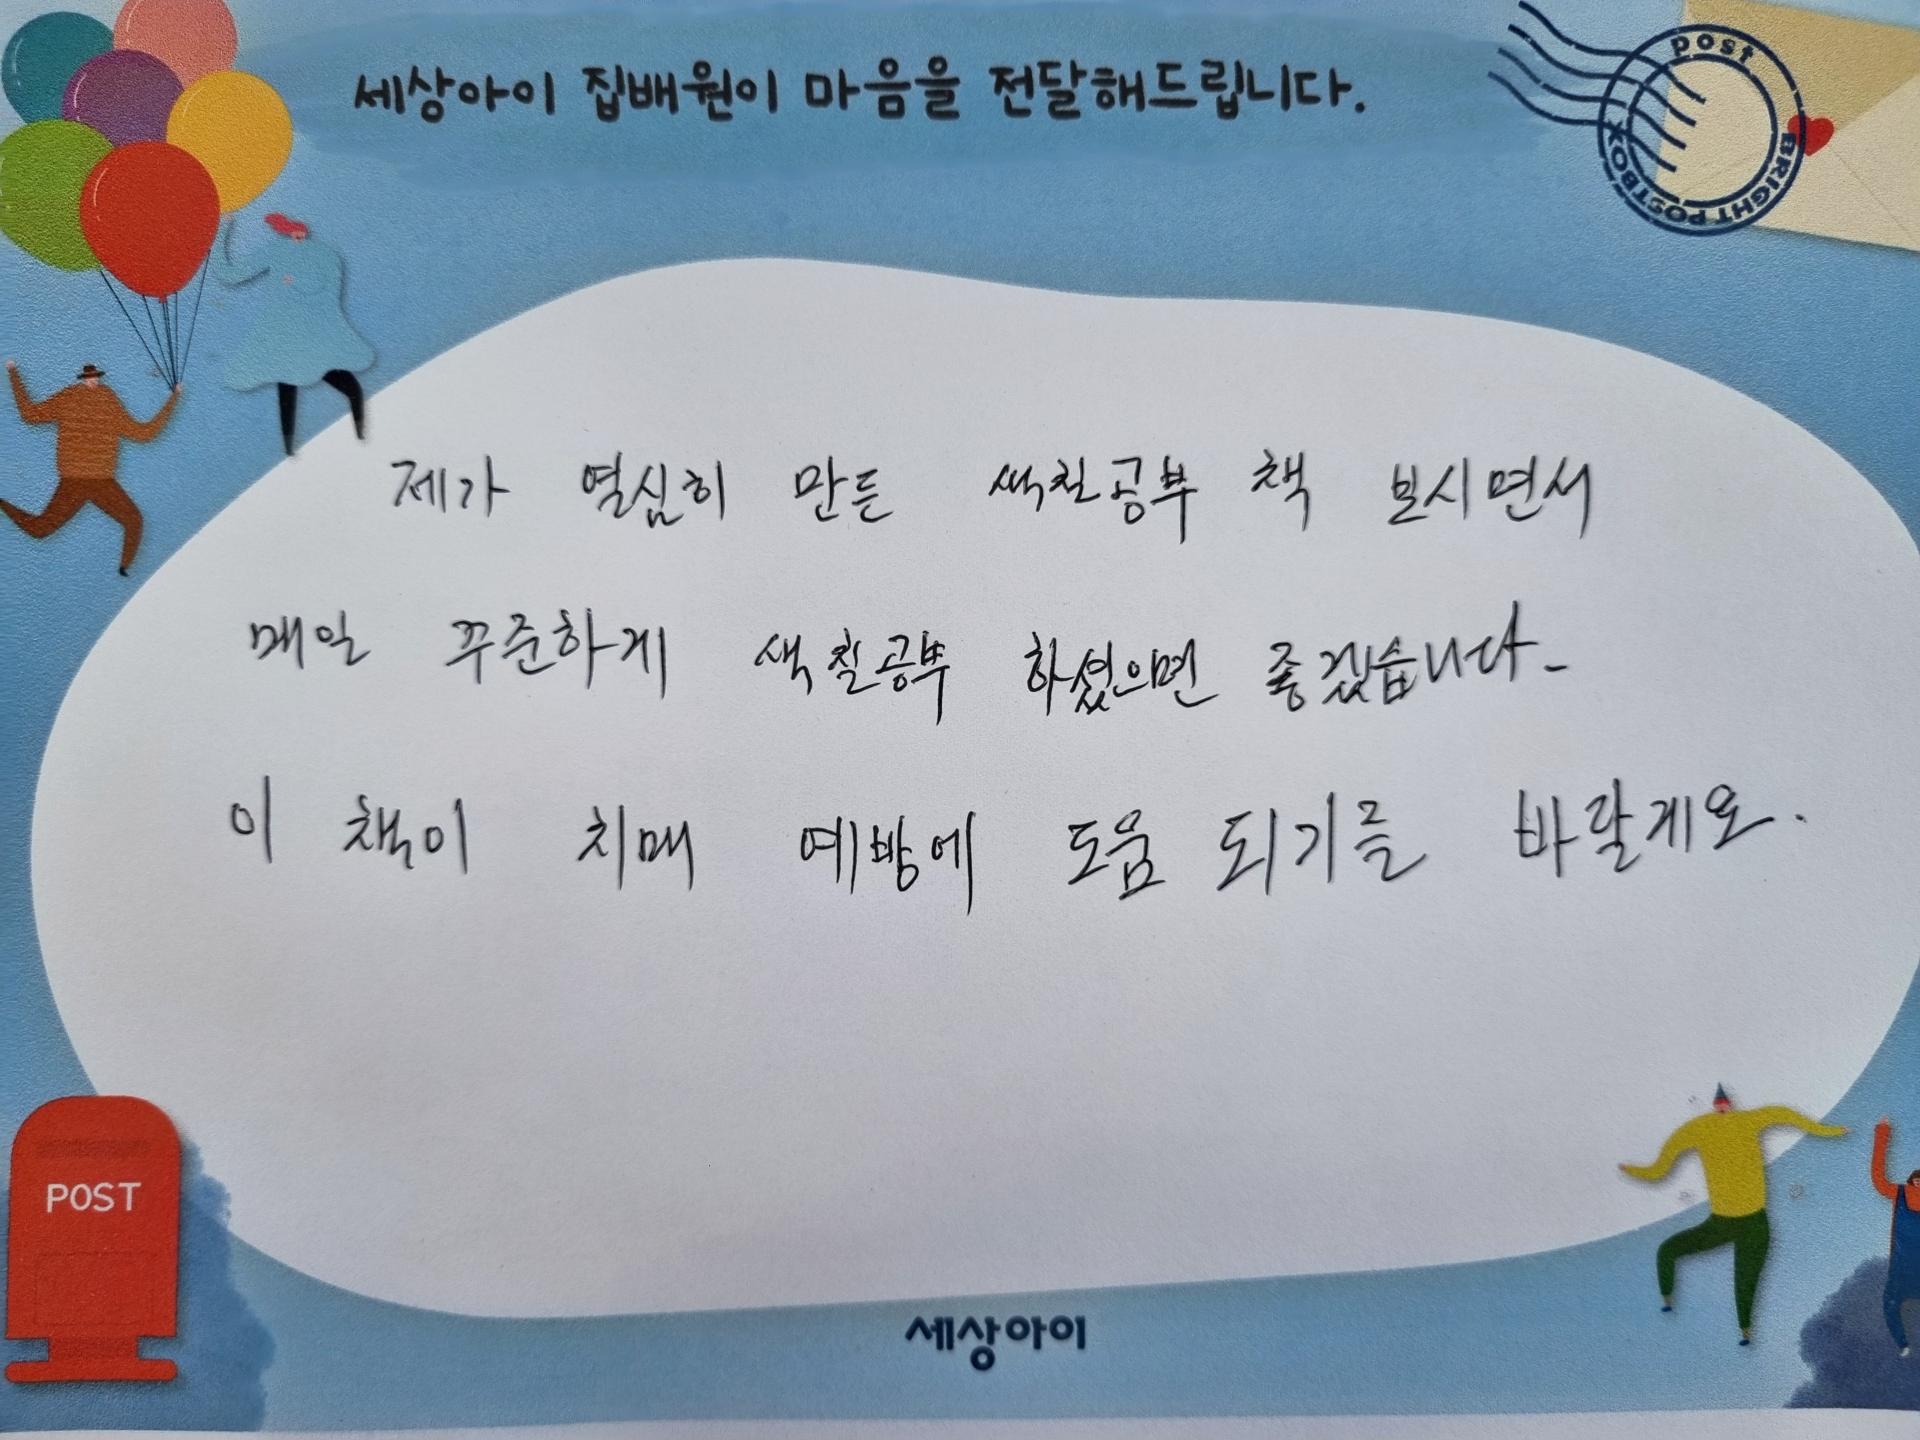 세상아이 집배원이 마음을 전달해드립니다.
post
BRIGHT POSTBOX
제가 열심히 만든 색칠공부 책 보시면서
매일 꾸준하게 색칠공부 하셨으면 좋겠습니다-
이 책이 치매 예방에 도움 되기를 바랄게요.
POST
세상아이